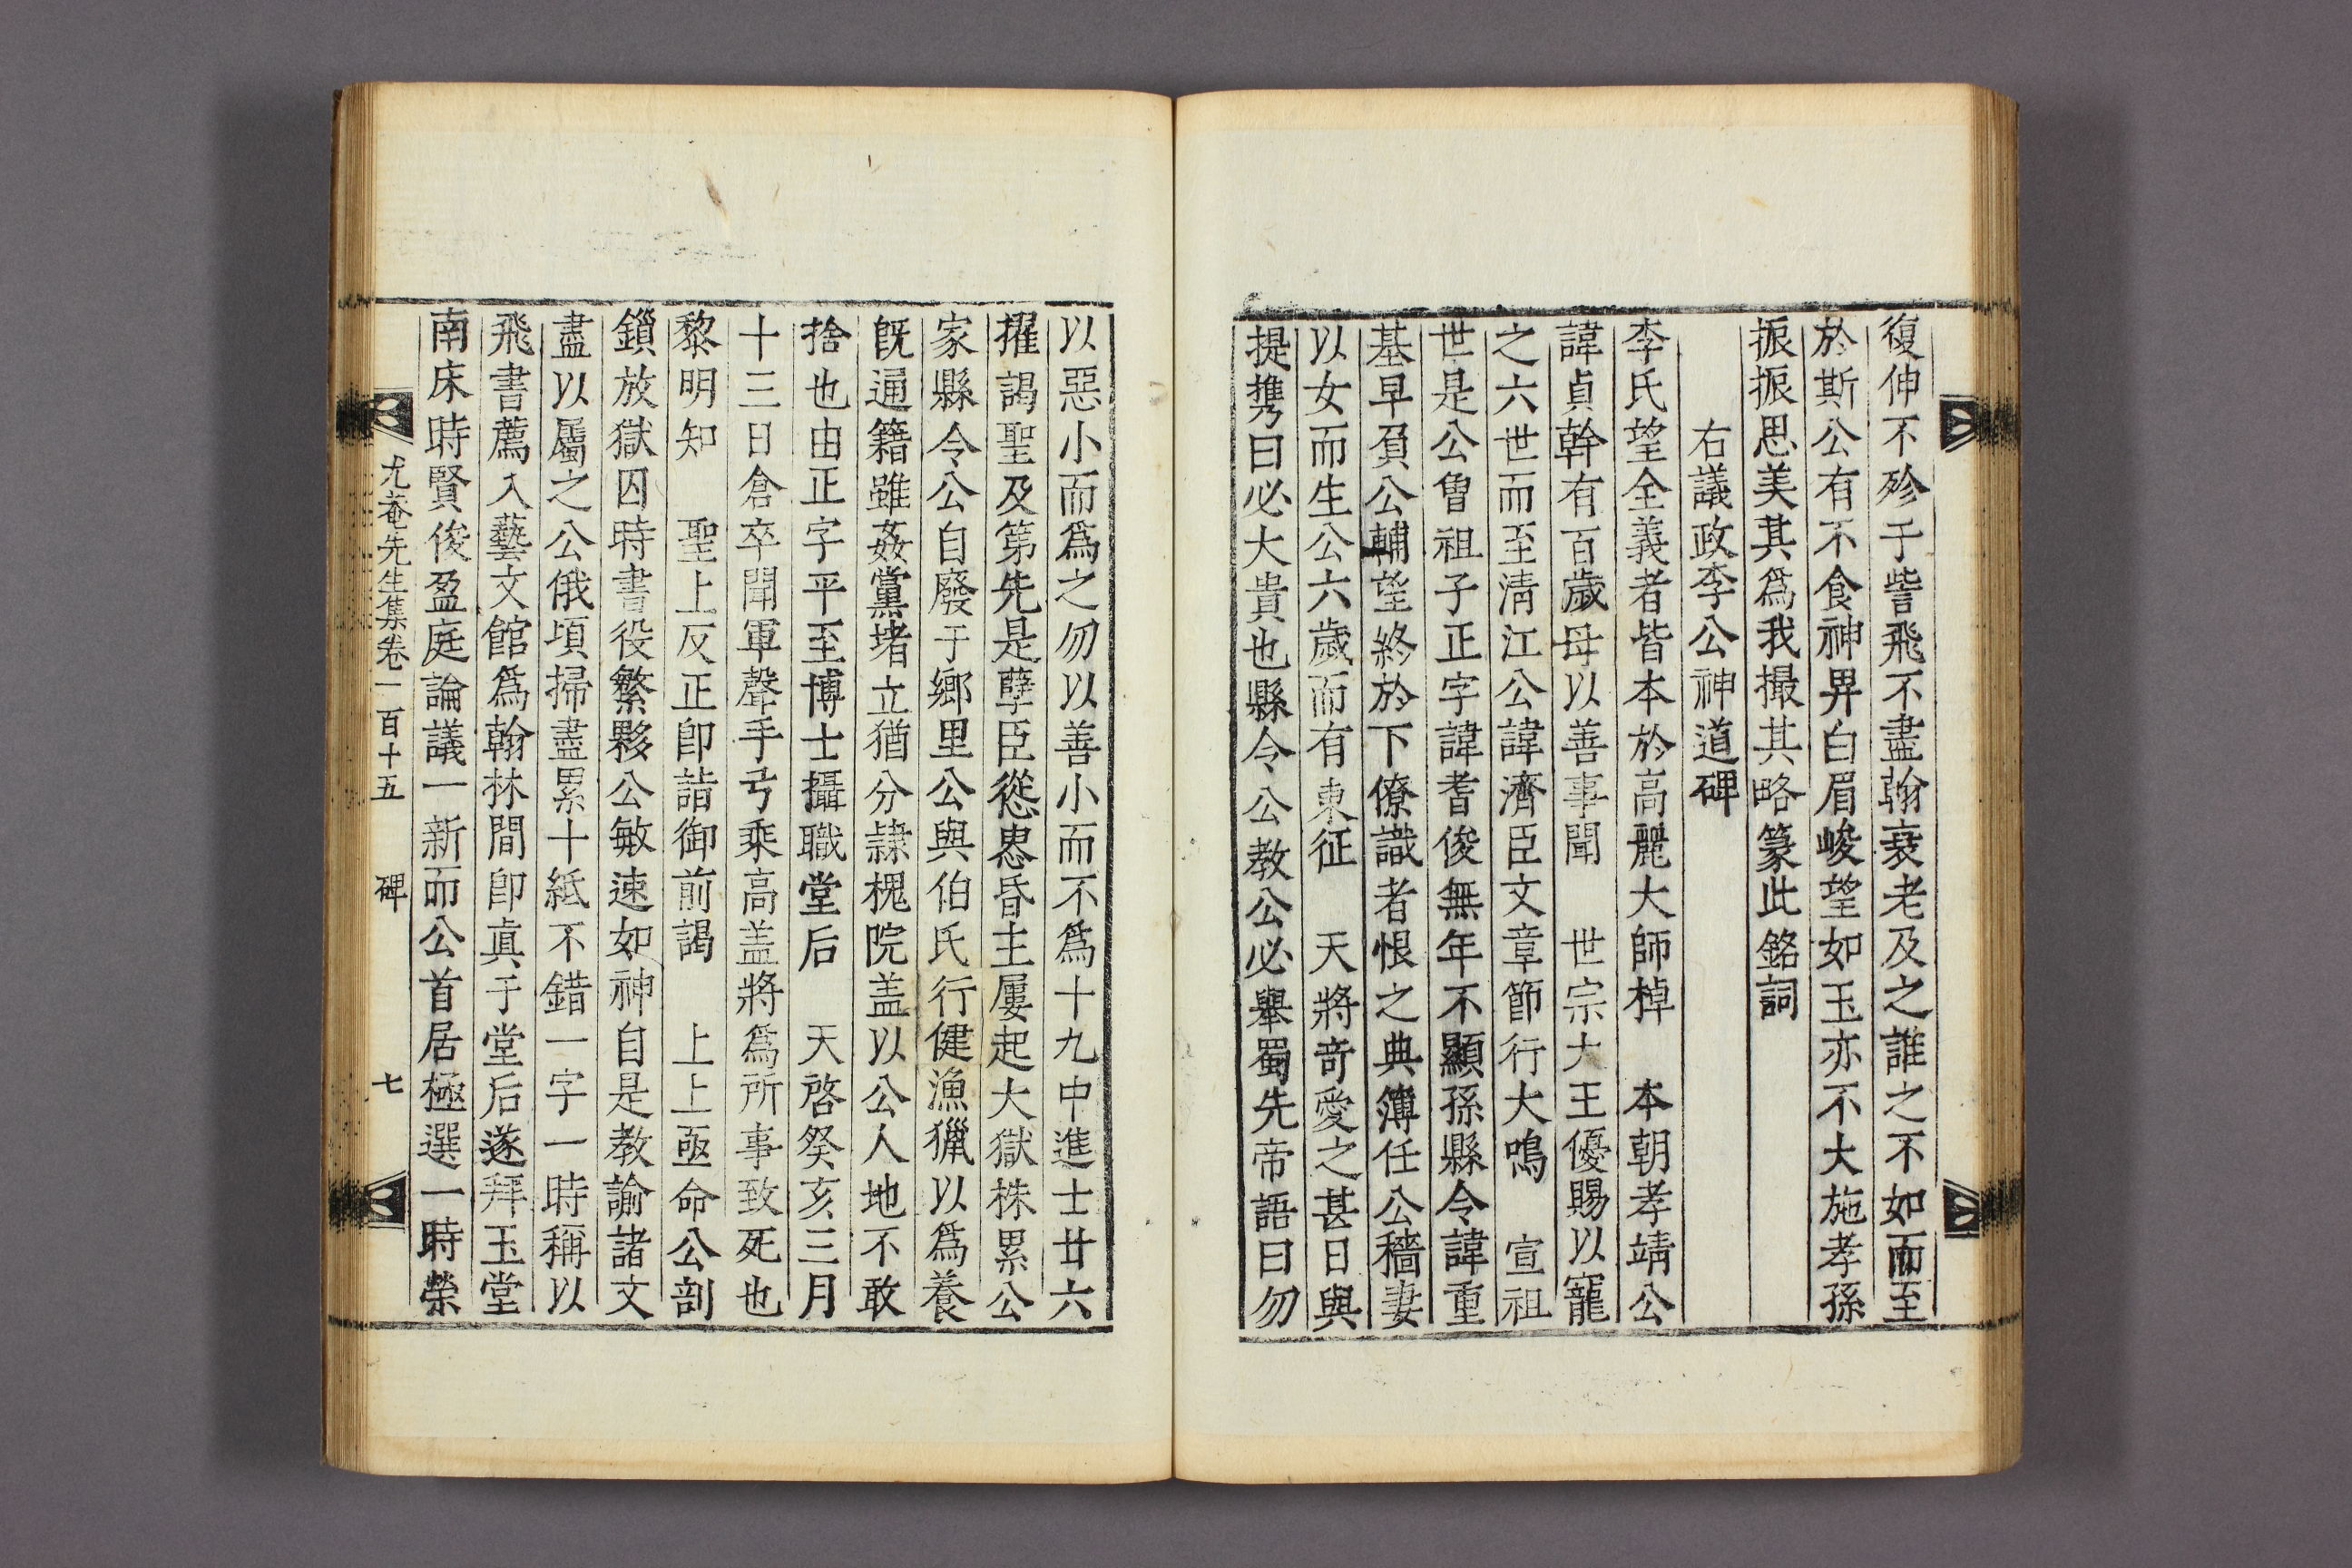 復伸不殄于訾飛不盡翰衰老及之誰之不如而至
於斯公有不食神畀白眉峻望如玉亦不大施孝孫
振振思美其爲我撮其略篆此銘詞
右議政李公神道碑
李氏望全義者皆本於高麗大師棹 本朝孝靖公
諱貞幹有百歲母以善事聞 世宗大王優賜以寵
之六世而至淸江公諱濟臣文章節行大鳴 宣祖
世是公曾祖子正字諱耆俊無年不顯孫縣令諱重
基早負公輔望終於下僚識者恨之典簿任公穡妻
以女而生公六歲而有東征 天將奇愛之甚日與
提携曰必大貴也縣令公教公必舉蜀先帝語曰勿
以惡小而爲之勿以善小而不爲十九中進士廿六
擢謁聖及第先是孽臣慫恿昏主屢起大獄株累公
家縣令公自廢于鄉里公與伯氏行健漁獵以爲養
旣通籍雖姦黨堵立猶分隷槐院盖以公人地不敢
捨也由正字平至博士攝職堂后 天啓癸亥三月
十三日倉卒聞軍聲手弓乘高盖將爲所事致死也
黎明知 聖上反正卽詣御前謁 上上亟命公剖
鎖放獄囚時書役繁夥公敏速如神自是教諭諸文
盡以屬之公俄頃掃盡累十紙不錯一字一時稱以
飛書薦入藝文館爲翰林間卽眞于堂后遂拜玉堂
南床時賢俊盈庭論議一新而公首居極選一時榮
尤菴先生集卷一百十五 碑 七